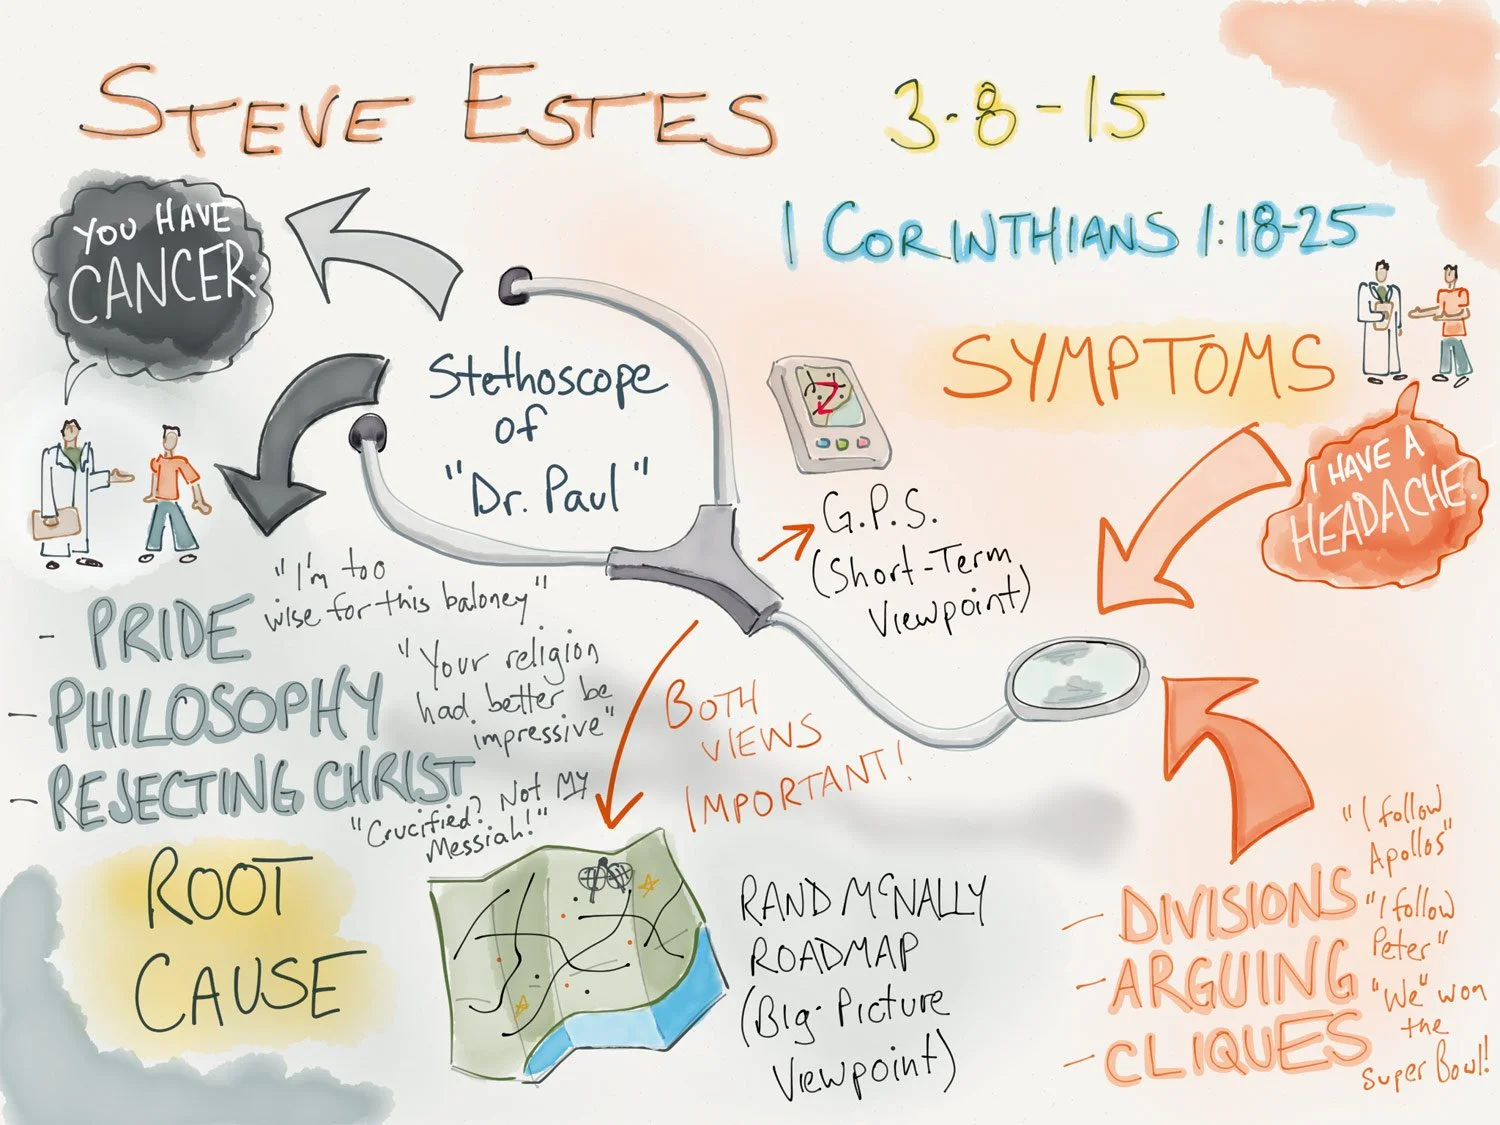 STEVE ESTES 3-8-15
1 CORINTHIANS 1:18-25
YOU HAVE
CANCER.
Stethoscope
of
"Dr. Paul"
SYMPTOMS
I HAVE A
HEADACHE.
G.P.S.
(Short-Term
Viewpoint)
- PRIDE
"I'm too
wise for this baloney"
- PHILOSOPHY
"Your religion
had better be
impressive"
- REJECTING CHRIST
"Crucified? Not My
Messiah!"
ROOT
CAUSE
BOTH
VIEWS
IMPORTANT!
RAND McNALLY
ROADMAP
(Big-Picture
Viewpoint)
- DIVISIONS
- ARGUING
- CLIQUES
"I follow
Apollos"
"I follow
Peter"
"We" won
the
Super Bowl!